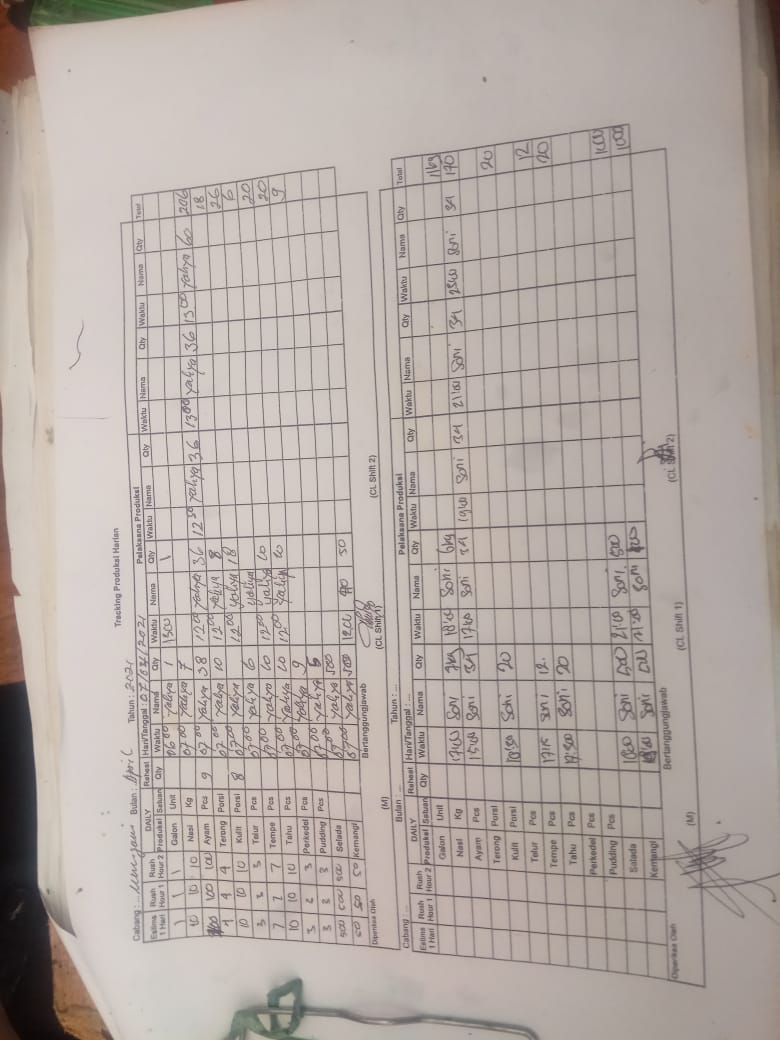 Tracking Produksi Harian
Cabang : ... Bulan : April Tahun : 2021
Estims 1 Hari Rush Hour 1 Rush Hour 2 DAILY Produksi Satuan Reheat Qty Hari/Tanggal : 07/04/2021 Pelaksana Produksi Total
Waktu Nama Qty Waktu Nama Qty Waktu Nama Qty Waktu Nama Qty Waktu Nama Qty
1 1 1 Galon Unit 06 00 Yahya 1 1500 1
10 10 10 Nasi Kg 07 00 Yahya 7
100 100 Ayam Pcs 9 07 00 Yahya 38 12 00 Yahya 36 12 30 Yahya 36 13 00 Yahya 36 13 00 Yahya 60 206
4 4 Terong Porsi 07 00 Yahya 10 12 00 Yahya 8 18
10 10 10 Kulit Porsi 8 07 00 Yahya 12 00 Yahya 18 26
3 3 3 Telur Pcs 07 00 Yahya 6 Yahya 6
7 7 7 Tempe Pcs 07 00 Yahya 10 12 00 Yahya 10 20
10 10 10 Tahu Pcs 07 00 Yahya 10 12 00 Yahya 10 20
3 2 3 Perkedel Pcs 07 00 Yahya 9 9
3 3 3 Pudding Pcs 07 00 Yahya
500 500 500 Selada 07 00 Yahya 500
50 50 50 Kemangi 07 00 Yahya 1200 50
Diperiksa Oleh Bertanggungjawab
(M) (CL Shift 1) (CL Shift 2)
Cabang : ... Bulan : ... Tahun : ...
Estims 1 Hari Rush Hour 1 Rush Hour 2 DAILY Produksi Satuan Reheat Qty Hari/Tanggal : ... Pelaksana Produksi Total
Waktu Nama Qty Waktu Nama Qty Waktu Nama Qty Waktu Nama Qty Waktu Nama Qty
Galon Unit
Nasi Kg 17:00 Soni Soni 6kg 11kg
Ayam Pcs Soni 34 17:00 Soni 34 19:00 Soni 34 21:00 Soni 34 23:00 Soni 34 170
Terong Porsi
Kulit Porsi Soni 20 20
Telur Pcs
Tempe Pcs 17:15 Soni 12 12
Tahu Pcs Soni 20 20
Perkedel Pcs
Pudding Pcs
Selada Soni 500 21:00 Soni 500 1000
Kemangi Soni 500 21:00 Soni 1000
Diperiksa Oleh Bertanggungjawab
(M) (CL Shift 1) (CL Shift 2)